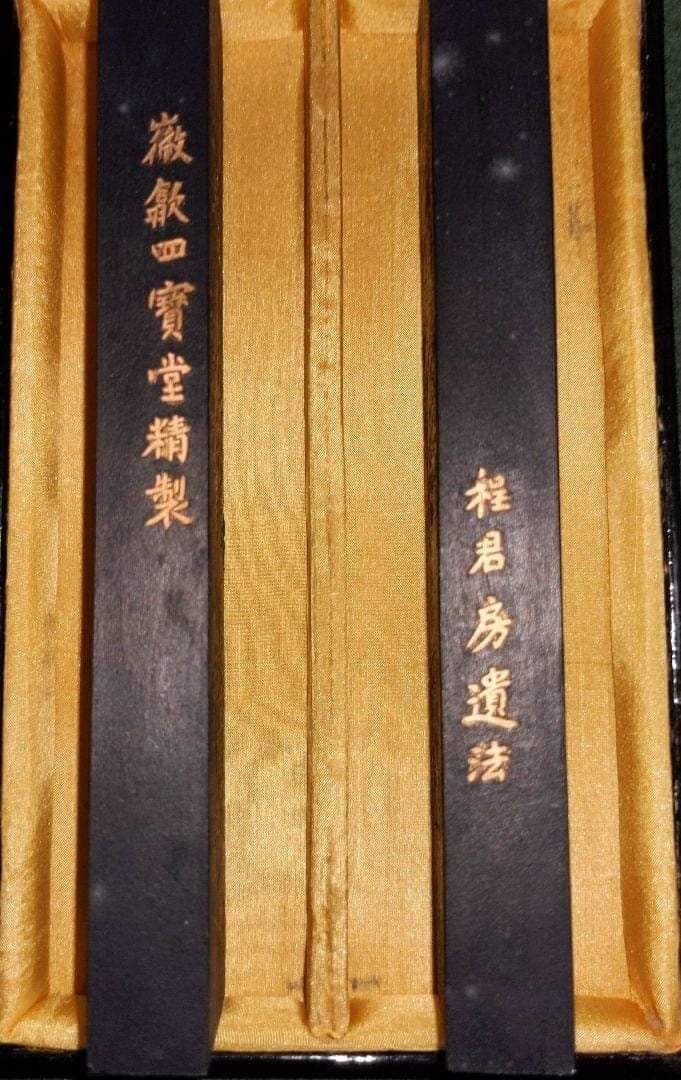 程君房遺法
徽歙四寶堂精製